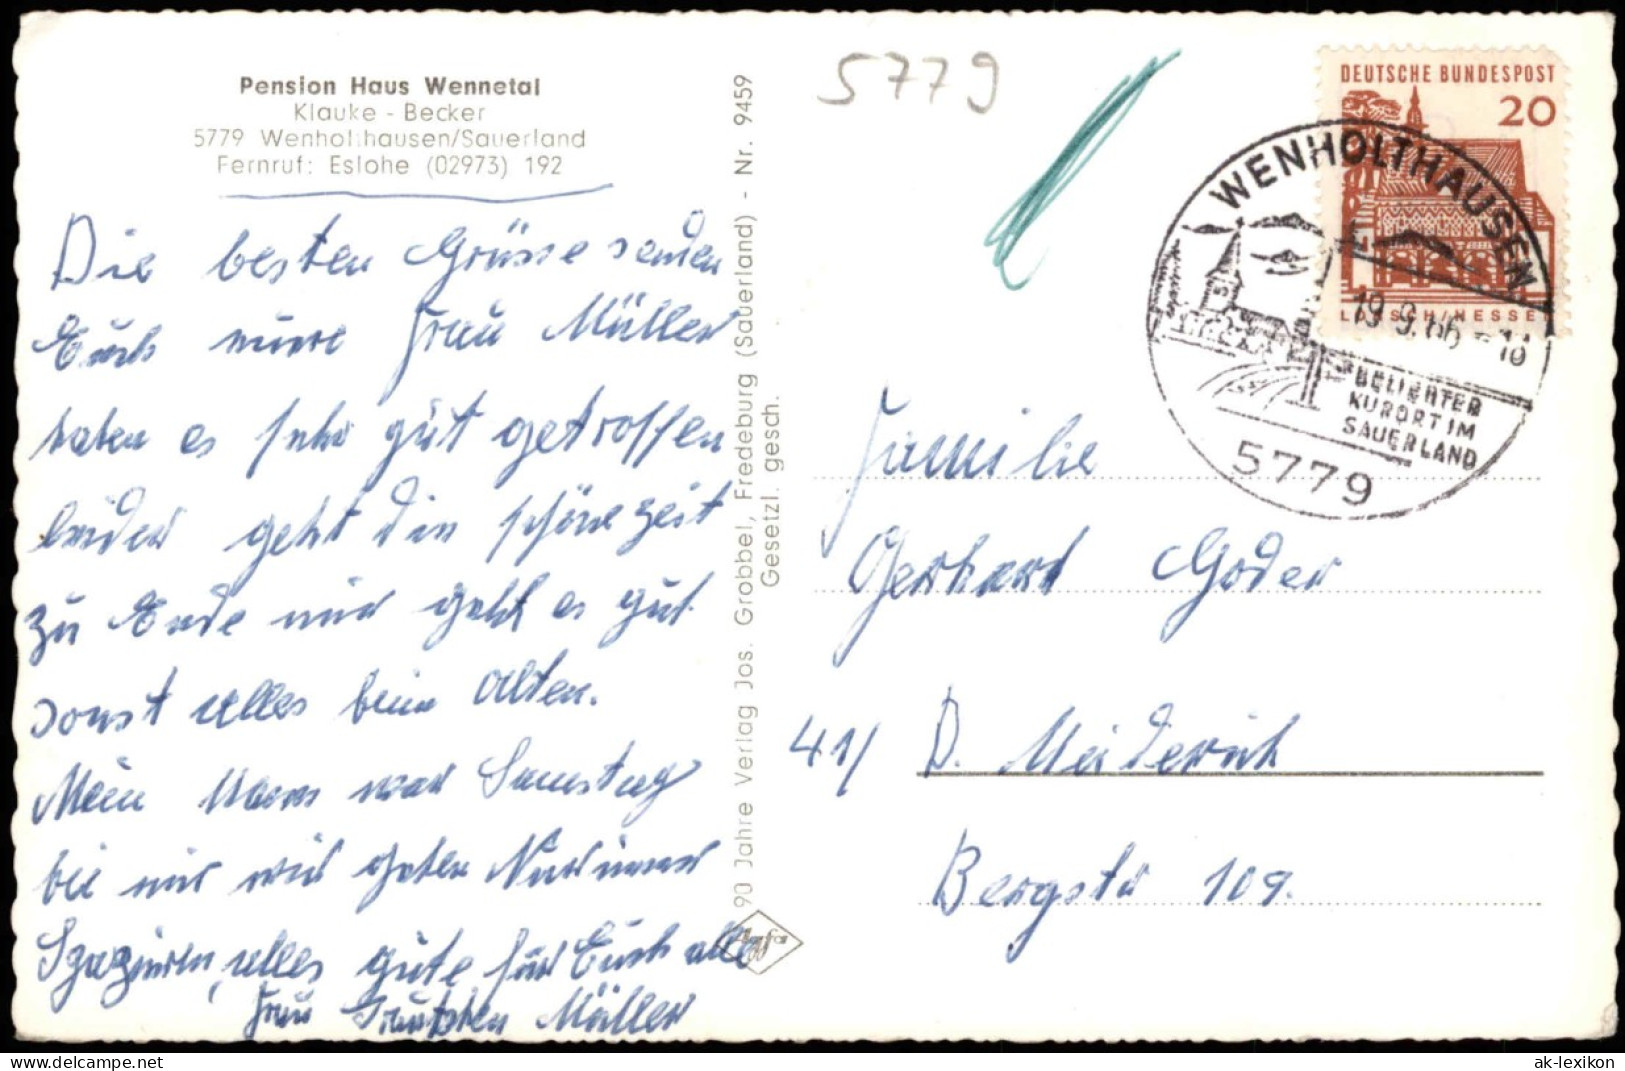 Pension Haus Wennetal
Klauke - Becker
5779 Wenholthausen/Sauerland
Fernruf: Eslohe (02973) 192
Die besten Grüsse senden
Euch Frau Müller
haben es sehr gut getroffen
leider geht die schöne Zeit
zu Ende mir geht es gut
sonst alles beim Alten.
Mein Mann war Samstag
bei mir wir gehen Nur immer
Spazieren, alles gute für Euch alle
Frau Müller
90 Jahre Verlag Jos. Grobbel, Fredeburg (Sauerland) - Nr. 9459
Gesetzl. gesch.
5779
DEUTSCHE BUNDESPOST
20
LORSCH/HESSEN
WENHOLTHAUSEN
19.9.66 - 18
BELIEBTER
KURORT IM
SAUERLAND
5779
Familie
Gerhard Goder
41/ D. Meiderich
Bergstr 109.
delcampe.net
ak-lexikon